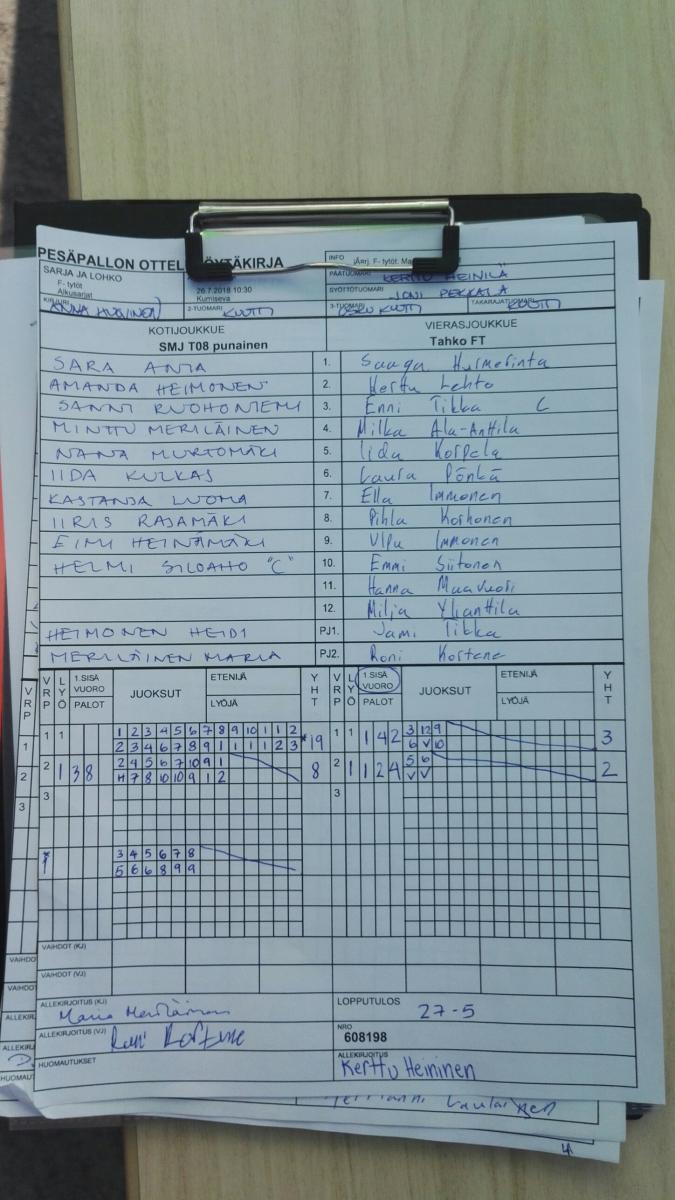 PESÄPALLON OTTEL
SARJA JA LOHKO
F- tytöt
Alkusarjat
26.7.2018 10:30
Kumiseva
INFO
KIRJURI
2-TUOMARI KUUTTI
PÄÄTUOMARI KERTTU HEINILÄ
SYÖTTÖTUOMARI JONI PEKKALA
3-TUOMARI OSKU KUUTTI TAKARAJATUOMARI KUUTTI
KOTIJOUKKUE VIERASJOUKKUE
SMJ T08 punainen Tahko FT
SARA ANIA 1. Saaga Hurmerinta
AMANDA HEIMONEN 2. Kerttu Lehto
SANNI RUOHONIEMI 3. Enni Tikka C
MINTTU MERILÄINEN 4. Milka Ala-Anttila
NANA MURTOMÄKI 5. Iida Korpela
IIDA KULKAS 6. Laura Pönkä
KASTANJA LUOMA 7. Ella Immonen
IIRIS RAJAMÄKI 8. Pihla Korhonen
EIMI HEINÄMÄKI 9. Immonen
HELMI SILOAHO "C" 10. Emmi Siitonen
11. Hanna Maavuori
12. Milja Ylianttila
HEIMONEN HEIDI PJ1. Jami Tikka
MERILÄINEN MARIA PJ2. Roni Kortene
VRP LYÖ 1.SISÄ VUORO PALOT JUOKSUT ETENIJÄ LYÖJÄ YHT VRP LYÖ 1.SISÄ VUORO PALOT JUOKSUT ETENIJÄ LYÖJÄ YHT
1 1 1 2 3 4 5 6 7 8 9 10 1 1 2 19 1 1 1 4 2 3 12 9 3
2 3 4 6 7 8 9 1 1 1 1 2 3 6 V 10
2 1 3 8 2 4 5 6 7 10 9 1 8 2 1 1 2 4 5 6 2
H 7 8 10 10 9 1 2 V V
3 3
3 4 5 6 7 8
5 6 6 8 9 9
VAIHDOT (KJ)
VAIHDOT (VJ)
ALLEKIRJOITUS (KJ) Maria Meriläinen
LOPPUTULOS 27-5
ALLEKIRJOITUS (VJ) Roni Kortene
NRO
608198
HUOMAUTUKSET
ALLEKIRJOITUS
Kerttu Heininen